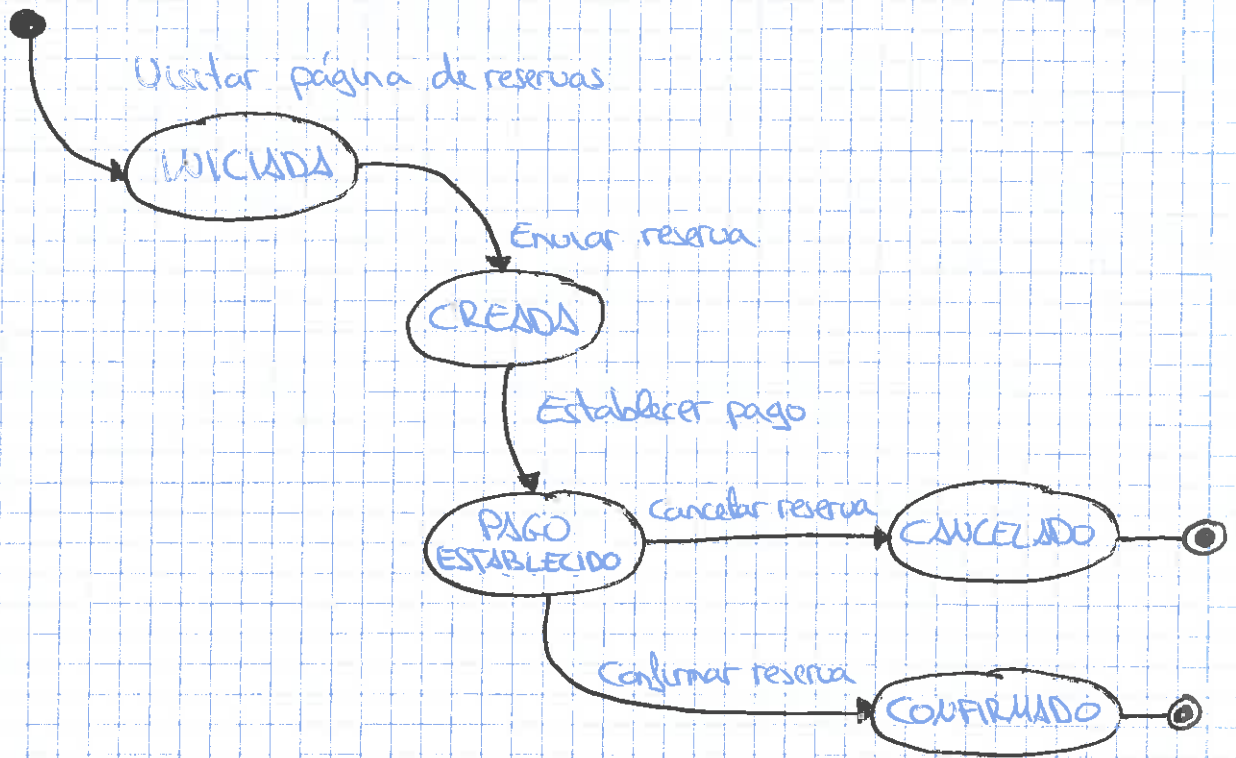 Visitar página de reservas
INICIADA
Enviar reserva
CREADA
Establecer pago
PAGO
ESTABLECIDO
Cancelar reserva
CANCELADO
Confirmar reserva
CONFIRMADO